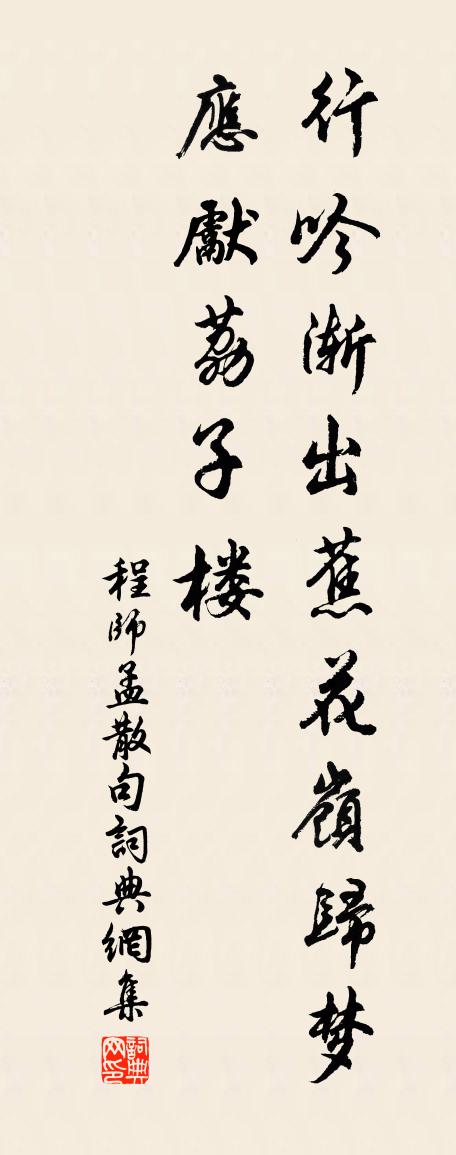 行吟漸出蕉花嶺歸梦
應獻荔子楼
程師孟散句詞典網集
詞典网印